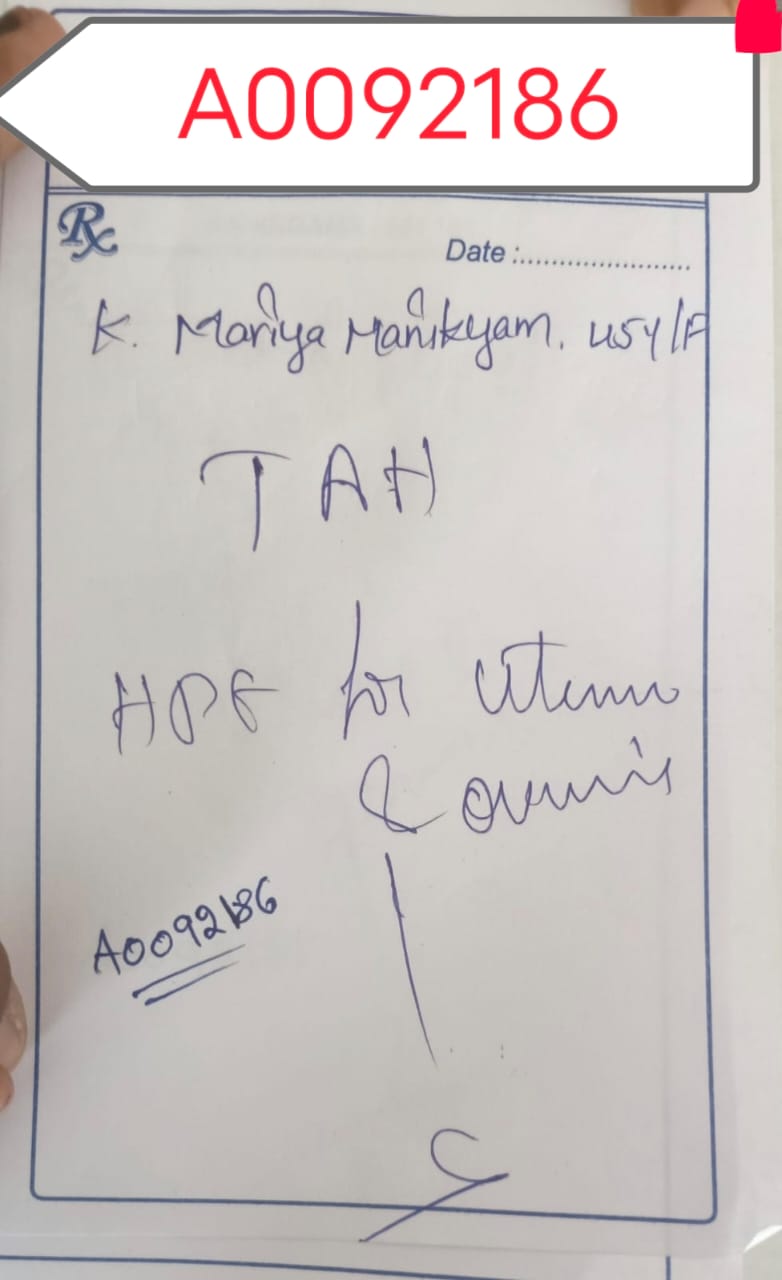 A0092186
Rx
Date :........................
K. Mariya Manikyam. 45y/F
TAH
HPE for Uterus
& ovaries
A0092186